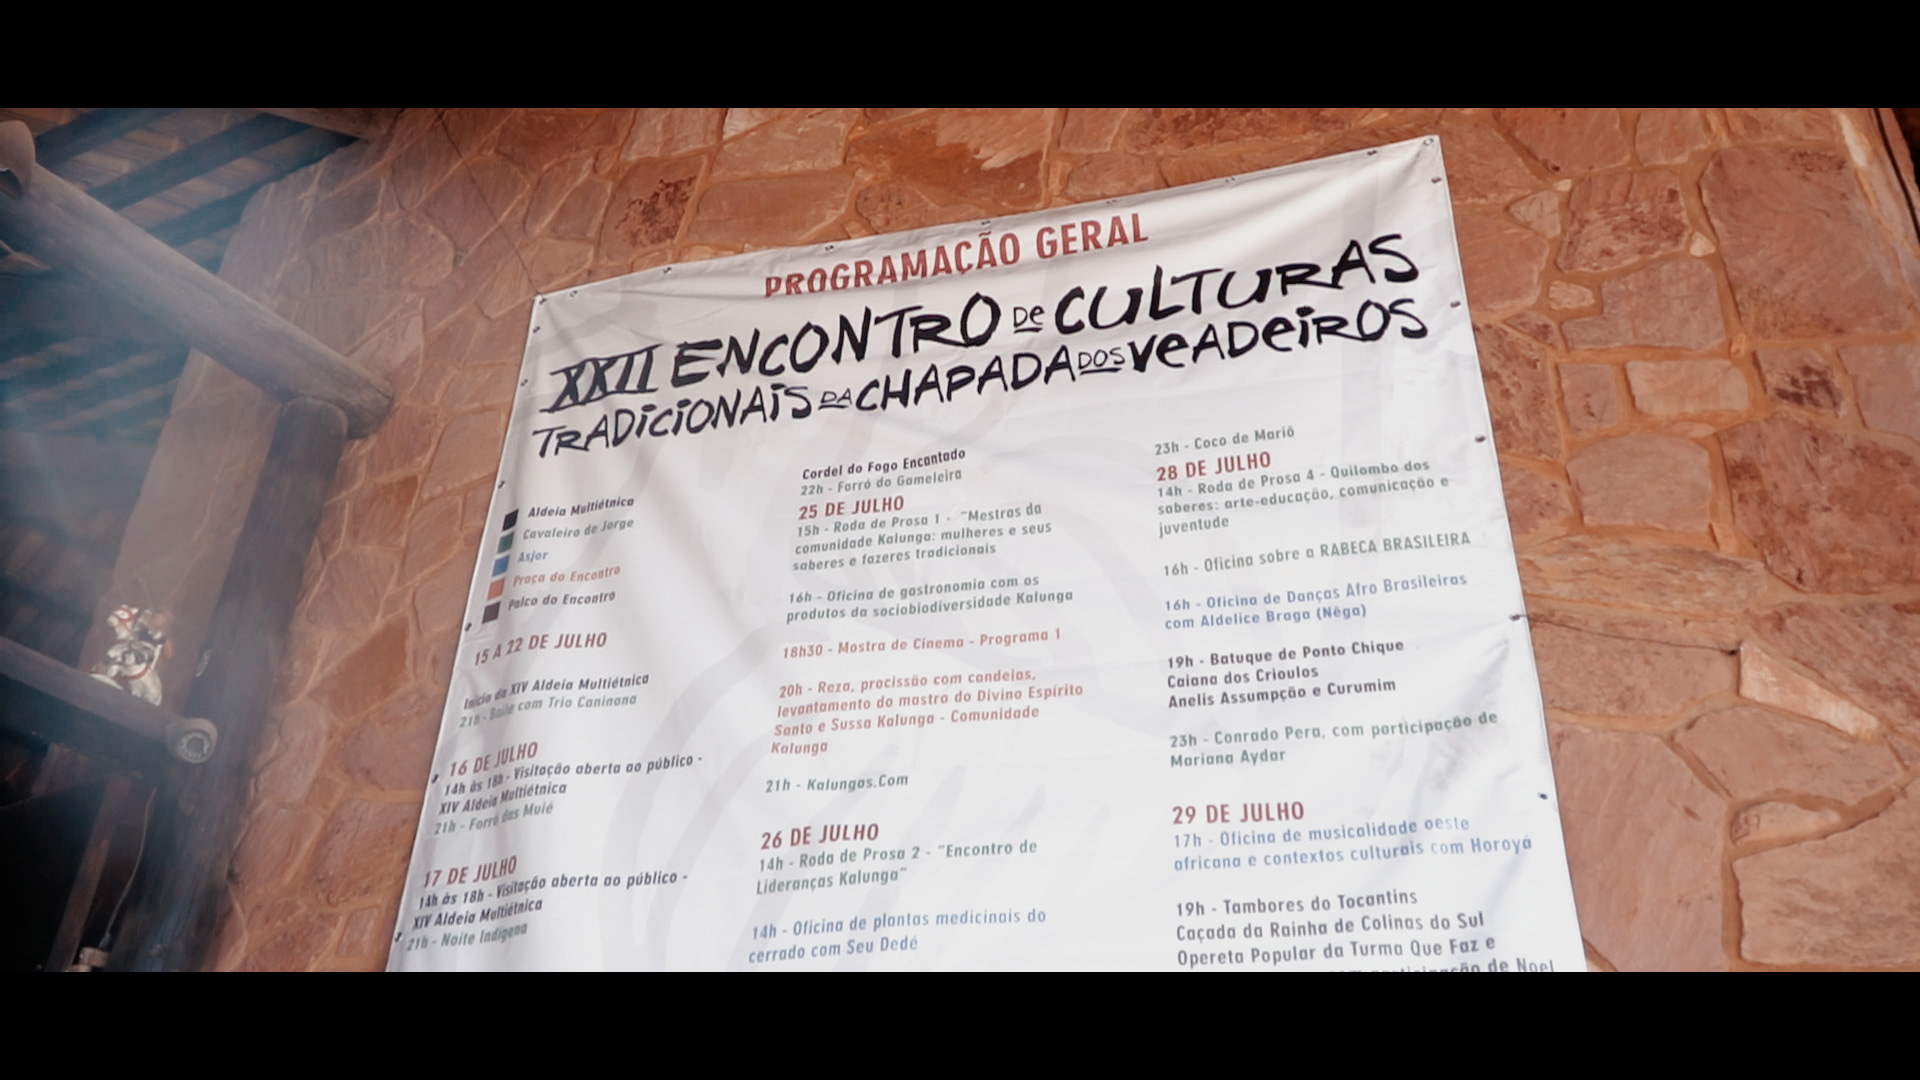 PROGRAMAÇÃO GERAL
XXII ENCONTRO DE CULTURAS
TRADICIONAIS DA CHAPADA DOS VEADEIROS
Aldeia Multiétnica
Cavaleiro de Jorge
Asjor
Praça do Encontro
Palco do Encontro
15 A 22 DE JULHO
Início da XIV Aldeia Multiétnica
21h - Baile com Trio Caninana
16 DE JULHO
14h às 18h - Visitação aberta ao público -
XIV Aldeia Multiétnica
21h - Forró das Muié
17 DE JULHO
14h às 18h - Visitação aberta ao público -
XIV Aldeia Multiétnica
21h - Noite Indígena
Cordel do Fogo Encantado
22h - Forró do Gameleira
25 DE JULHO
15h - Roda de Prosa 1 - "Mestras da
comunidade Kalunga: mulheres e seus
saberes e fazeres tradicionais
16h - Oficina de gastronomia com os
produtos da sociobiodiversidade Kalunga
18h30 - Mostra de Cinema - Programa 1
20h - Reza, procissão com candeias,
levantamento do mastro do Divino Espírito
Santo e Sussa Kalunga - Comunidade
Kalunga
21h - Kalungas.Com
26 DE JULHO
14h - Roda de Prosa 2 - "Encontro de
Lideranças Kalunga"
14h - Oficina de plantas medicinais do
cerrado com Seu Dedé
23h - Coco de Mariô
28 DE JULHO
14h - Roda de Prosa 4 - Quilombo dos
saberes: arte-educação, comunicação e
juventude
16h - Oficina sobre a RABECA BRASILEIRA
16h - Oficina de Danças Afro Brasileiras
com Aldelice Braga (Nêga)
19h - Batuque de Ponto Chique
Caiana dos Crioulos
Anelis Assumpção e Curumim
23h - Conrado Pera, com participação de
Mariana Aydar
29 DE JULHO
17h - Oficina de musicalidade oeste
africana e contextos culturais com Horoyá
19h - Tambores do Tocantins
Caçada da Rainha de Colinas do Sul
Opereta Popular da Turma Que Faz e
participação de Noel